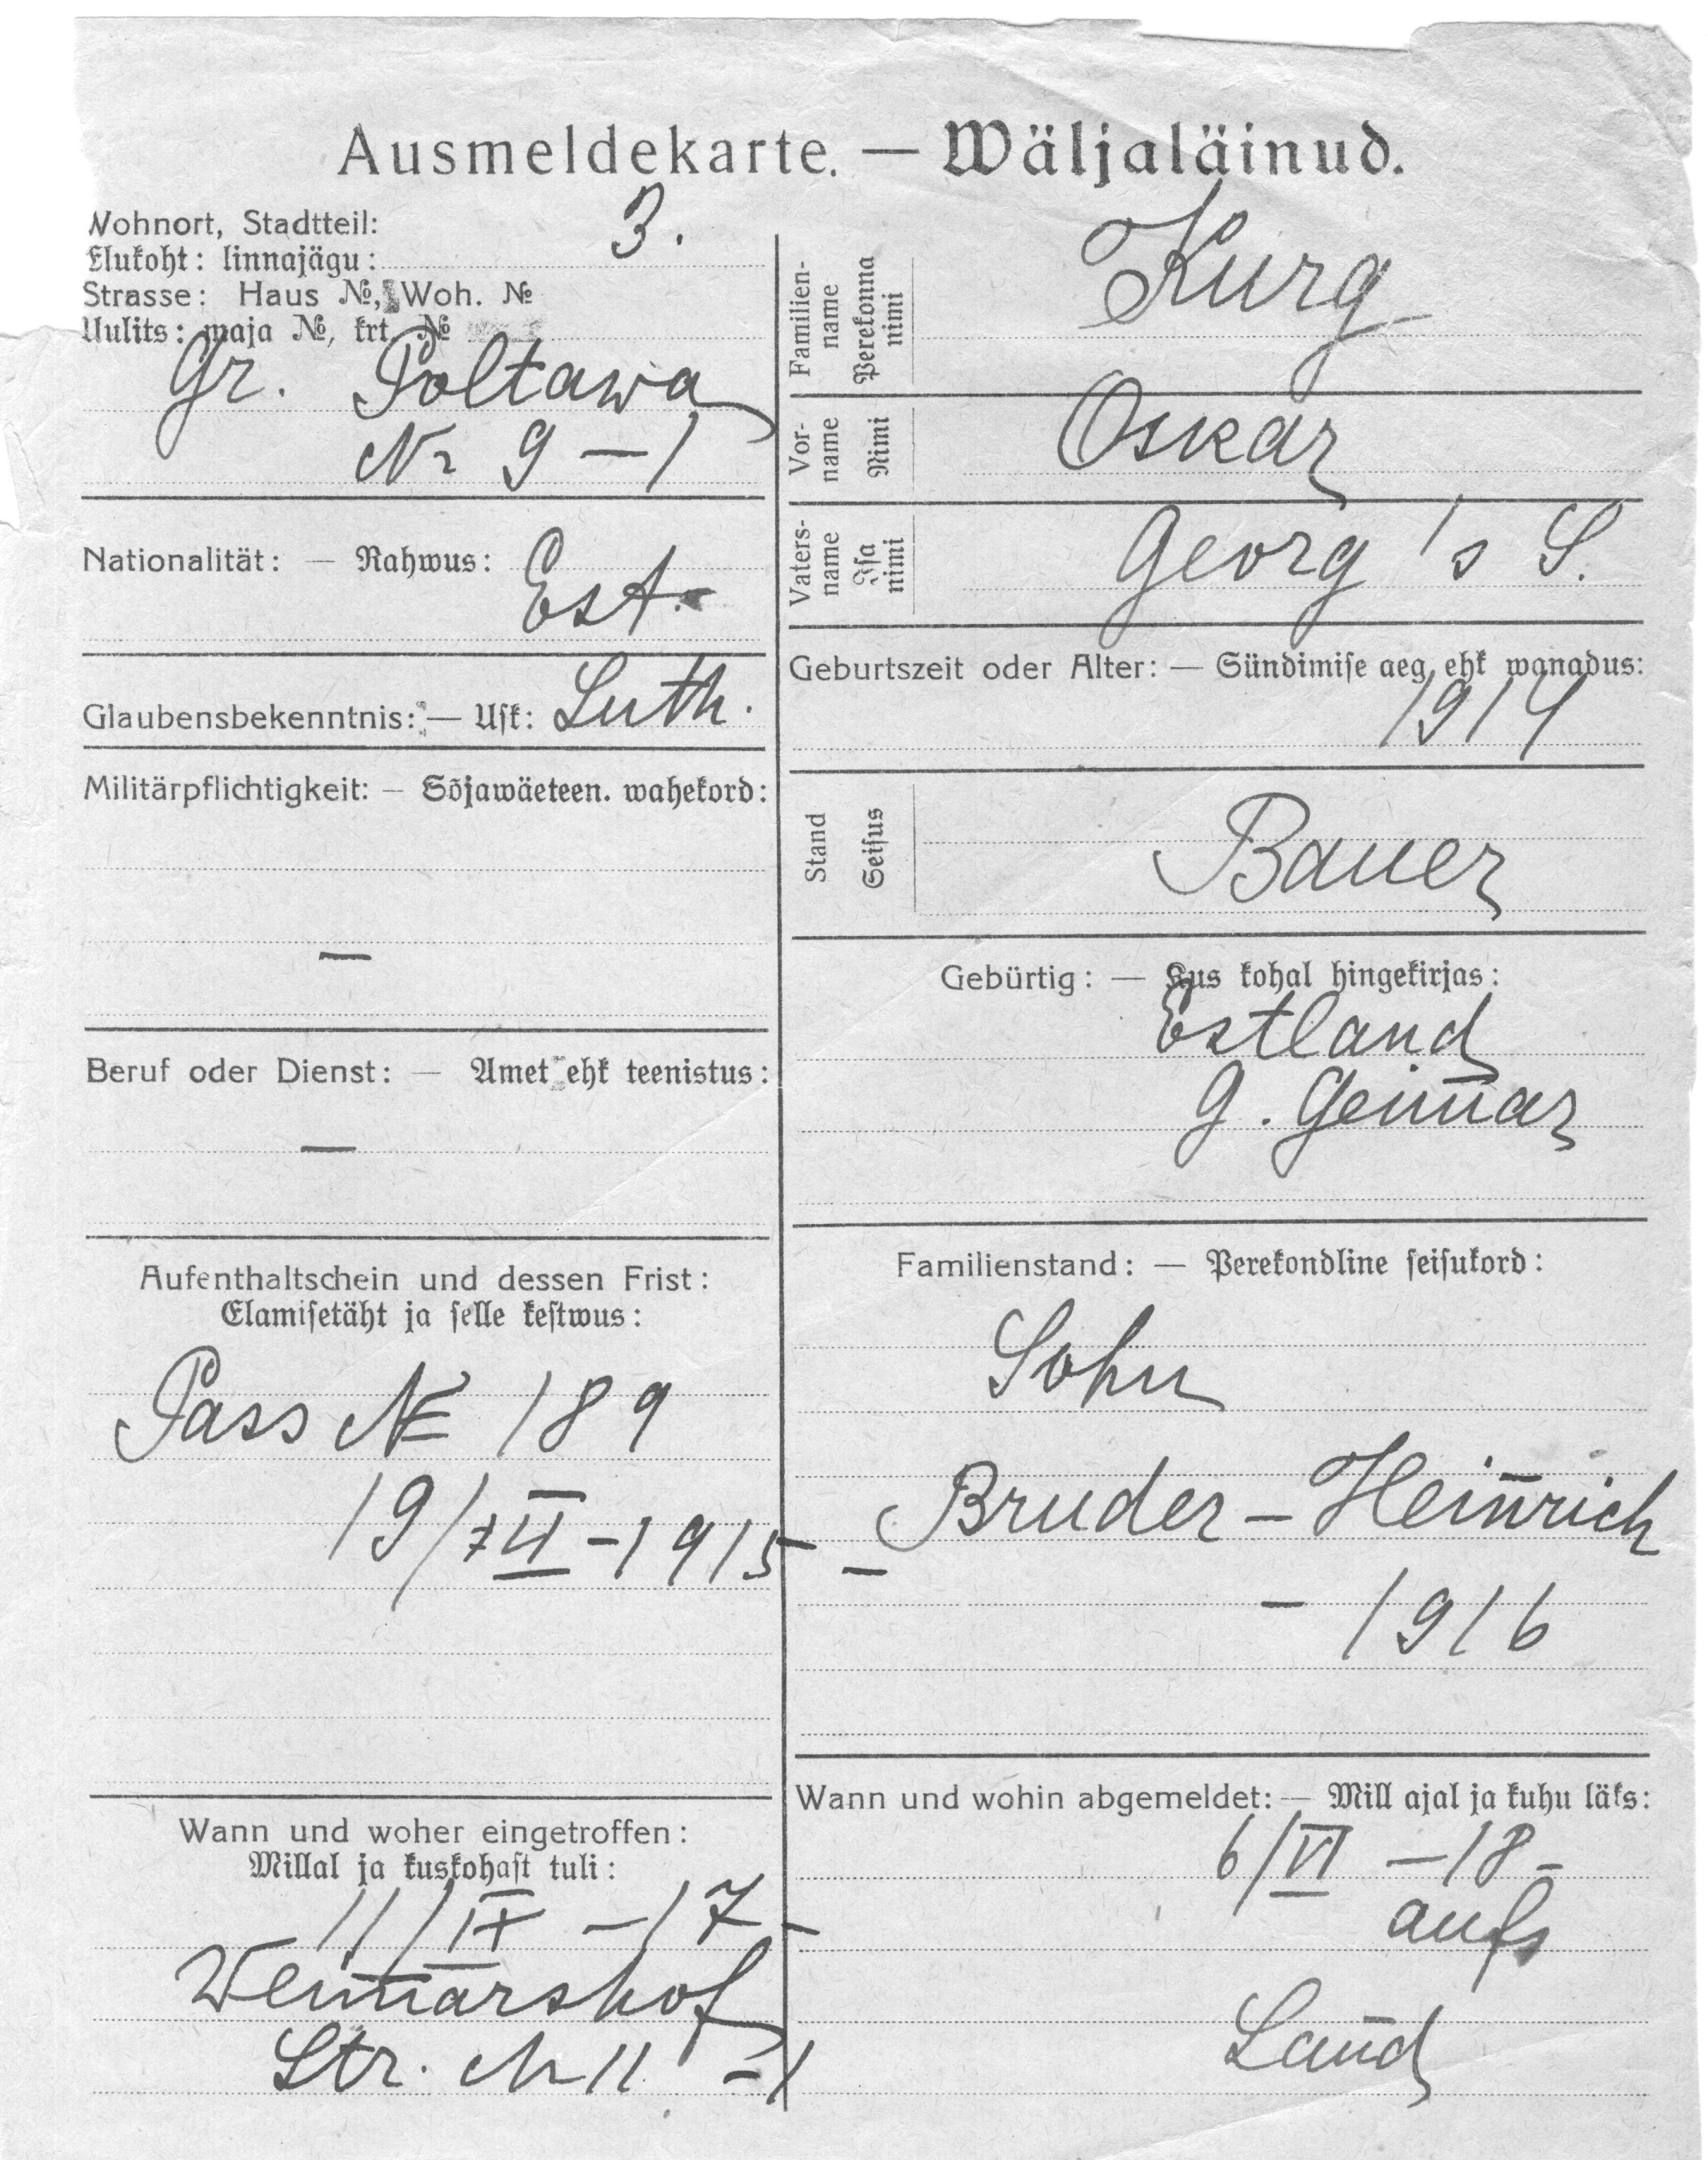 Ausmeldekarte. — Wäljaläinud.
Wohnort, Stadtteil:
Elukoht: linnajägu: 3.
Strasse: Haus №, Woh. №
Uulits: maja №, krt. №
Gr. Poltawa
Nr 9 — 1
Nationalität: — Rahwus: Est.
Glaubensbekenntnis: — Usk: Luth.
Militärpflichtigkeit: — Sõjawäeteen. wahekord:
—
Beruf oder Dienst: — Amet ehk teenistus:
—
Aufenthaltschein und dessen Frist:
Elamisetäht ja selle kestwus:
Pass № 189
19/XII – 1915 –
Wann und woher eingetroffen:
Millal ja kuskohast tuli:
11/IX – 17 –
Weimarshof
Str. Nr 11 – 1
Familien-
name
Perekonna
nimi
Kurg
Vor-
name
Nimi
Oskar
Vaters-
name
Isa
nimi
Georg's S.
Geburtszeit oder Alter: — Sündimise aeg ehk wanadus:
1914
Stand
Seisus
Bauer
Gebürtig: — Kus kohal hingekirjas:
Estland
Familienstand: — Perekondline seisukord:
Sohn
Bruder – Heinrich
– – 1916
Wann und wohin abgemeldet: — Mill ajal ja kuhu läks:
6/VI – 18 –
aufs
Land